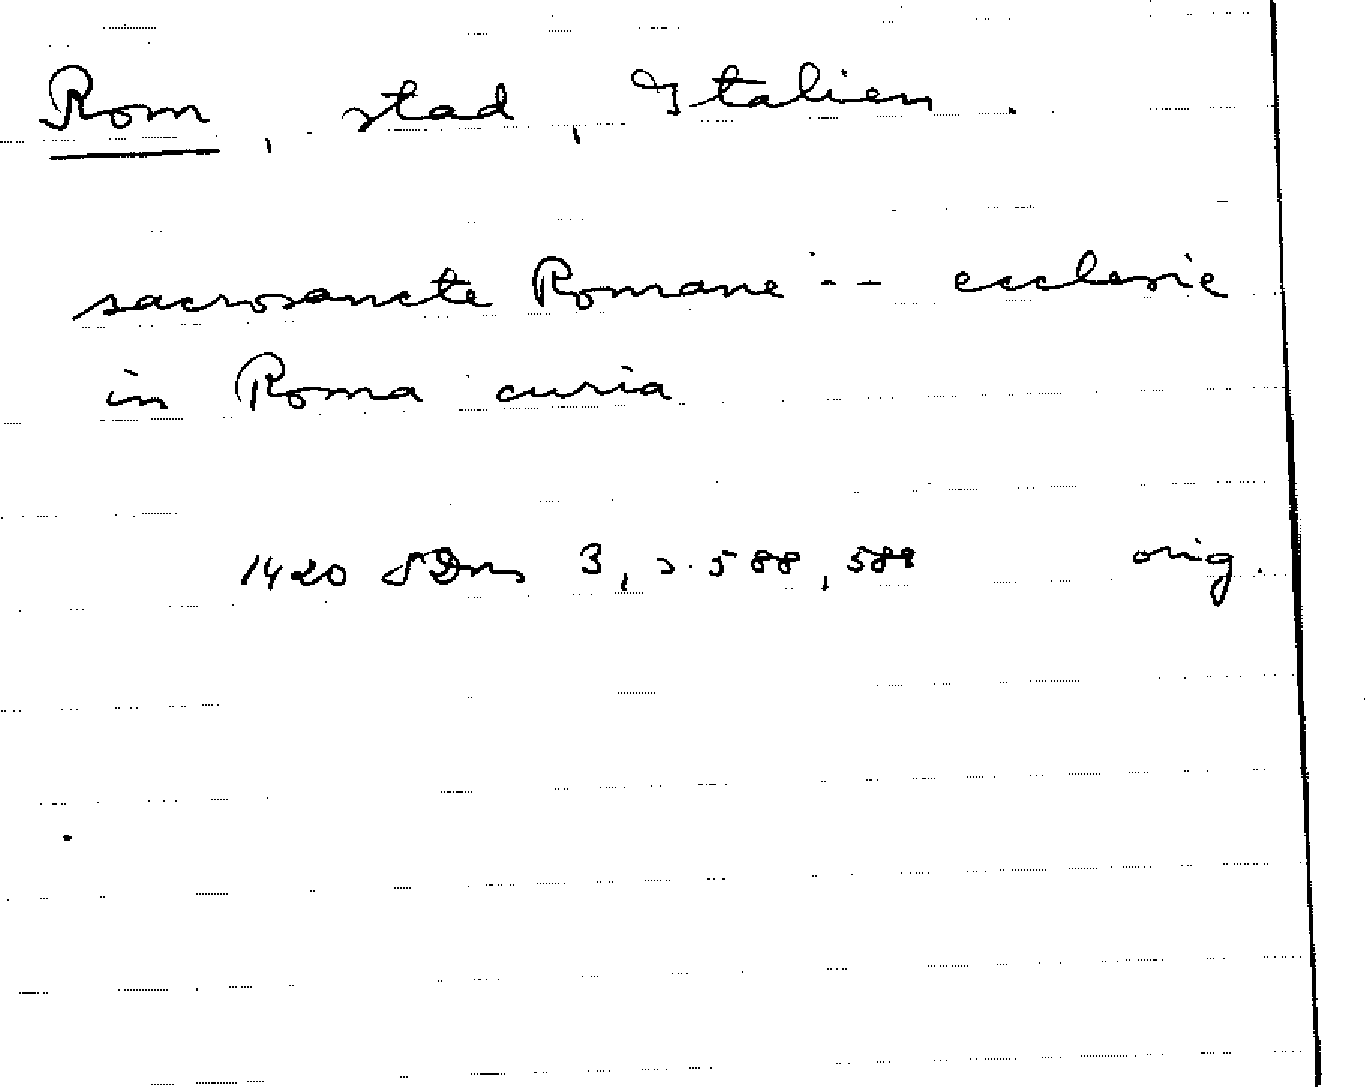 Rom, stad, Italien.
sacrosancte Romane -- ecclesie
in Roma curia
1420 SDns 3, s. 588, 589 orig.